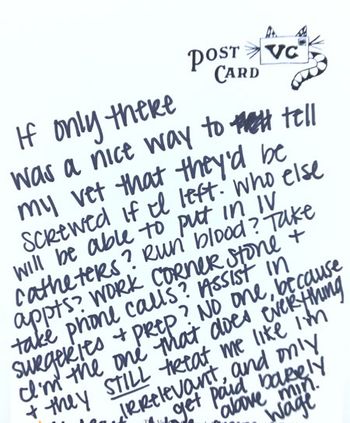 POST
CARD
VC
If only there
was a nice way to tell
my vet that they'd be
screwed if I left. Who else
will be able to put in IV
catheters? Run blood? Take
appts? Work corner stone +
take phone calls? Assist in
surgeries + prep? No one, because
I'm the one that does everything
+ they STILL treat me like I'm
irrelevant, and only
get paid barely
above min.
wage